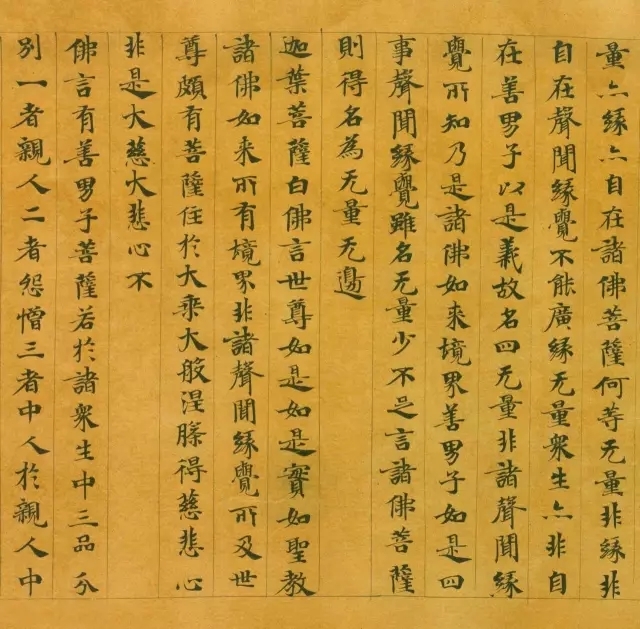 量亦緣亦自在諸佛菩薩何等无量非緣非
自在聲聞緣覺不能廣緣无量衆生亦非自
在善男子以是義故名四无量非諸聲聞緣
覺所知乃是諸佛如来境界善男子如是四
事聲聞緣覺雖名无量少不足言諸佛菩薩
則得名為无量无邊
迦葉菩薩白佛言世尊如是如是實如聖教
諸佛如来所有境界非諸聲聞緣覺所及世
尊頗有菩薩住於大乘大般涅槃得慈悲心
非是大慈大悲心不
佛言有善男子菩薩若於諸衆生中三品分
別一者親人二者怨憎三者中人於親人中